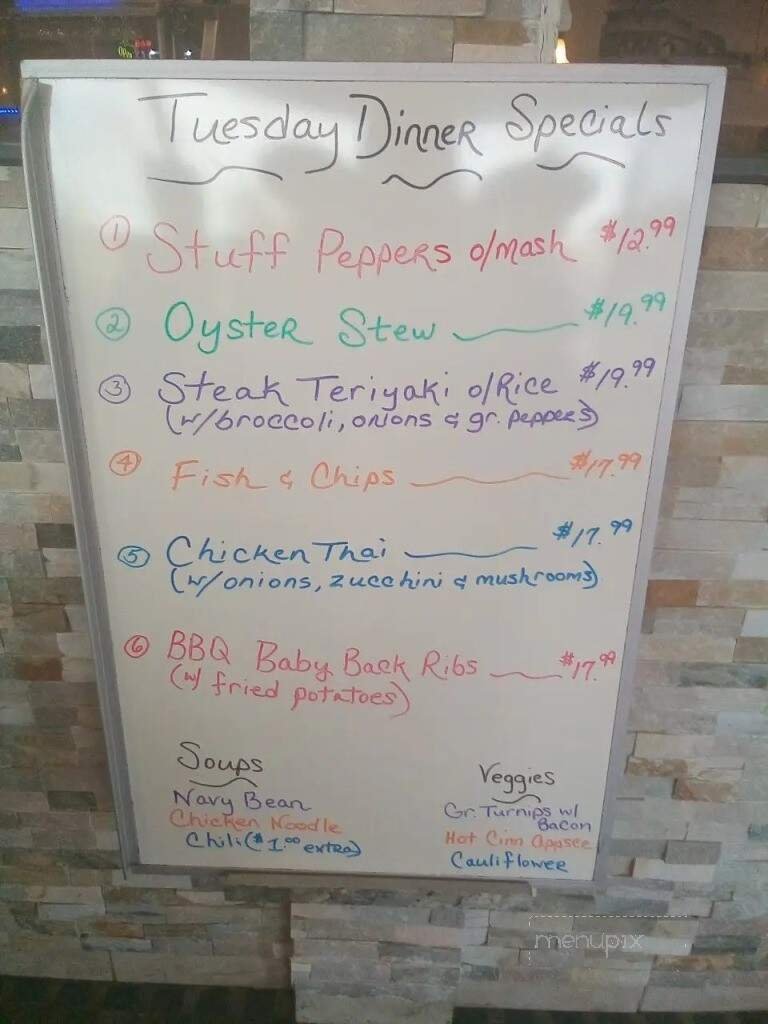 Tuesday Dinner Specials
① Stuff Peppers o/mash $12.99
② Oyster Stew $19.99
③ Steak Teriyaki o/Rice $19.99
(w/broccoli, onions & gr. peppers)
④ Fish & Chips $17.99
⑤ Chicken Thai $17.99
(w/onions, zucchini & mushrooms)
⑥ BBQ Baby Back Ribs $17.99
(w/ fried potatoes)
Soups
Navy Bean
Chicken Noodle
Chili ($1.00 extra)
Veggies
Gr. Turnips w/
Bacon
Hot Cinn Appsce
Cauliflower
menupix